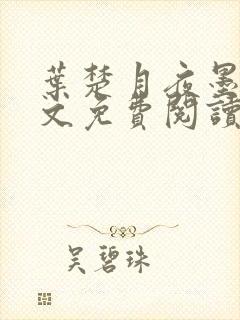 葉楚月夜墨
文免費閱讀
吴碧珠